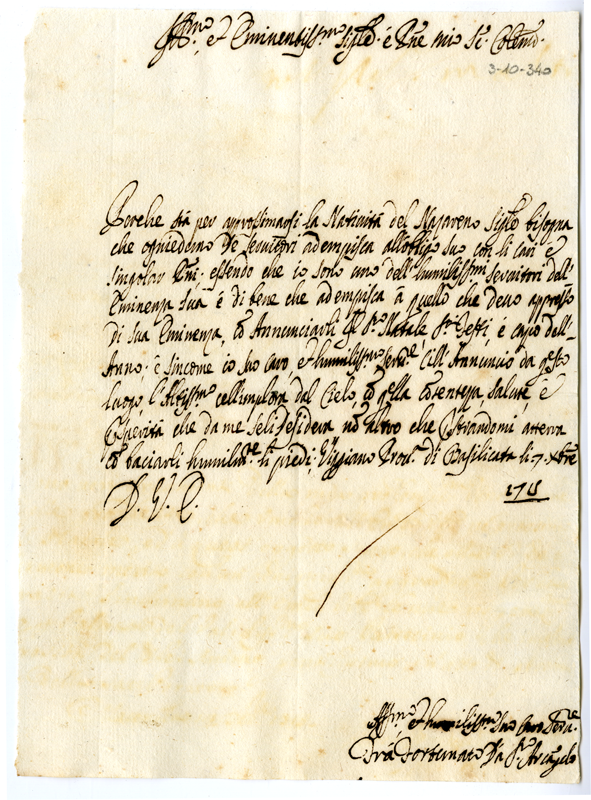 et Eminentiss.mo Sig.re e P'rne mio Se. Colend.
3-10-340
Perche stà per approssimarsi la Natività del Nazareno Sig.re bisogna
che ogniedeno De servitori adempisca all'offitio suo con li cari e
singolar P'ni. essendo che io sono uno dell'humilissimi servitori dell'
Eminenza sua è di bene che adempisca à quello che devo appresso
di sua Eminenza, co Annunciarli il S.to Natale, S.te Feste, e capo dell'
Anno. e sincome io suo caro, et humiliss.mo Serv.e l'Annuncio da q.esto
luogo l'Altiss.mo cell'implora dal Cielo co q.ella contenteza, salute, e
Prosperità che da me seli desidera no altro che Prostrandomi atterra
co baciarli humilm.te li piedi, Viggiano Prov.a di Basilicata li 7. Xbre
1715
D. V. E.
Aff.mo et humiliss.mo suo caro Serv.e
Fra Fortunato Da S.to Arcangelo